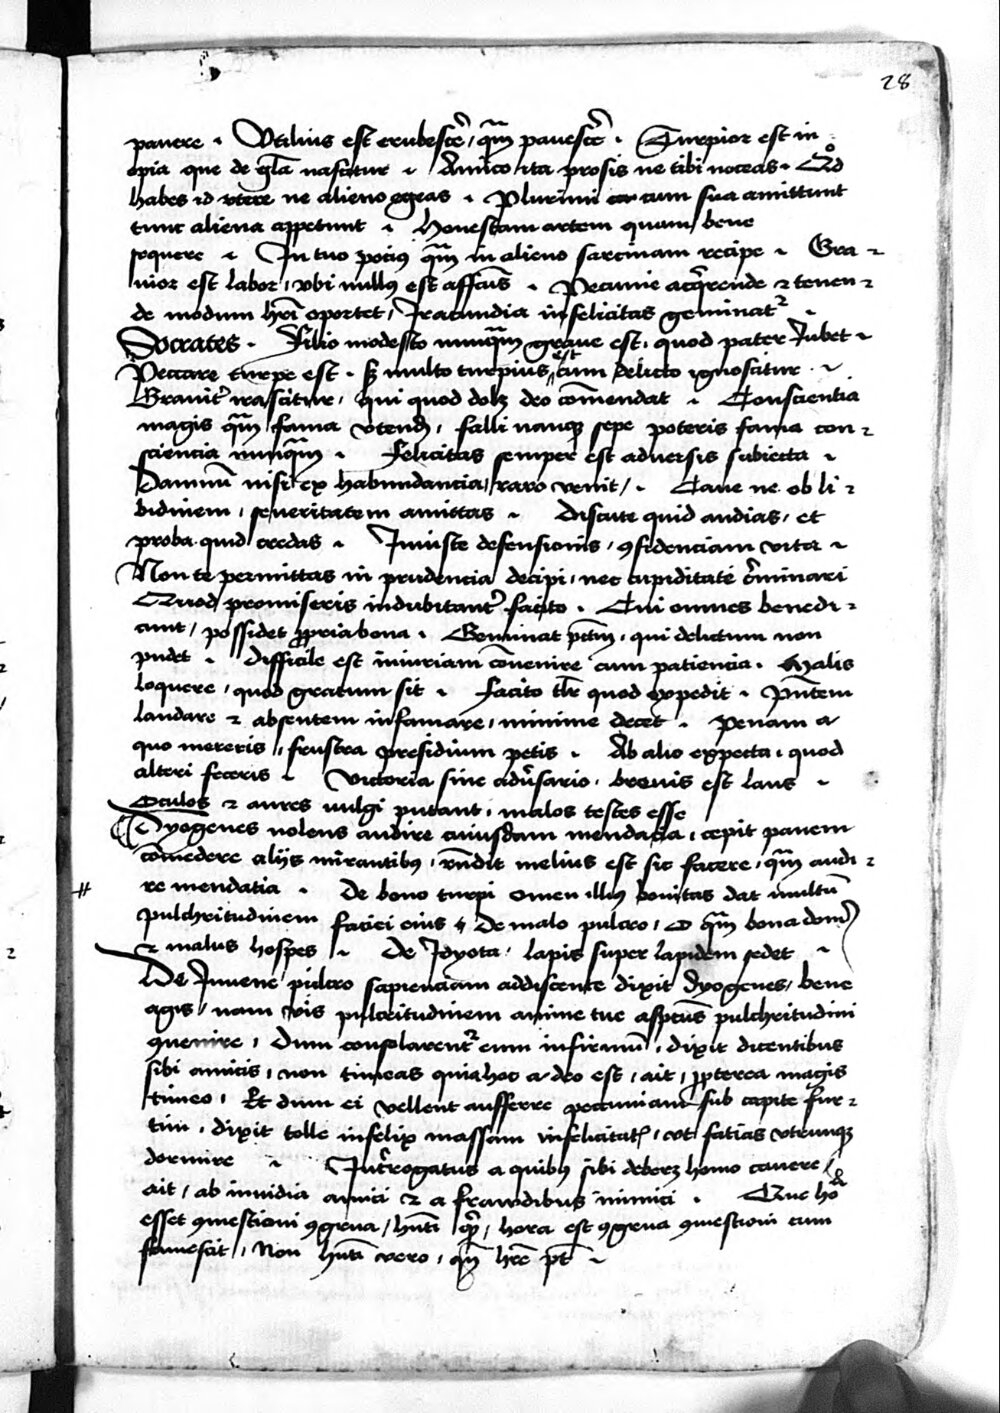 28
pauere . Utilius est erubescere / quam pauescere . Turpior est in
opia que de gla nascitur . Amico ita prosis ne tibi noceas . Qd
habes id utere ne alieno egeas . Plurimi cum sua amittunt
tunc aliena appetunt . Honestam artem quam bene
sequere . In tuo pocius quam in alieno sarcinam recipe . Gra
uior est labor / ubi nullus est affectus . Pecunie acquirende et tenen
de modum heri oportet / Iracundia infelicitas geminatur .
Socrates . Filio modesto nunquam graue est . quod pater Iubet .
Peccare turpe est . sed multo turpius est cum delicto ignoscitur .
Grauiter irascitur / qui quod dolet deo commendat . Conscientia
magis quam fama utendum / falli namque sepe poteris fama con
sciencia nunquam . Felicitas semper est aduersis subiecta .
Damnum nisi ex habundancia / raro uenit / . Caue ne ob li
bidinem / seueritatem amittas . Discute quid audias / et
proba quid credas . Iniuste defensionis / confidenciam uita .
Non te permittas in prudencia decipi / nec cupiditate criminari
Quod promiseris indubitanter facito . Cui omnes benedi
cunt / possidet propria bona . Geminat peccatum . qui delictum non
pudet . Difficile est iniuriam conuenire cum paciencia . Malis
loquere / quod gratum sit . Facito tamen quod expedit . Presentem
laudare et absentem infamare / minime decet . Penam a
quo mereris / frustra presidium petis . Ab alio expecta / quod
alteri feceris . Uictoria sine aduersario . breuis est laus .
Oculos et aures uulgi putant / malos testes esse
Dyogenes nolens audire cuiusdam mendacia / cepit panem
comedere aliis mirantibus / respondit melius est sic facere / quam audi
re mendatia . De bono turpi omen illius bonitas dat multum
pulchritudinem faciei eius . De malo pulcro / O quam bona domus
et malus hospes . De Idyota / lapis super lapidem sedet .
De Iuuene pulcro sapienciam addiscente dixit dyogenes / bene
agis / nam uis pulcritudinem anime tue aspectus pulchritudini
conuenire / Dum consolarentur eum infirmum / dixit dicentibus
sibi amicis / non timeas quia hoc a deo est / ait / propterea magis
timeo / Et dum ei uellent aufferre pecuniam sub capite fur
tim / dixit tolle infelix massam infelicitatis / ut facias utrumque
dormire . Interrogatus a quibus sibi deberet homo cauere /
ait / ab inuidia amici et a fraudibus inimici . Que hora
esset comestioni congrua / habenti quidem / hora est congrua comestioni cum
famescit / Non habenti uero / quando habere potest .